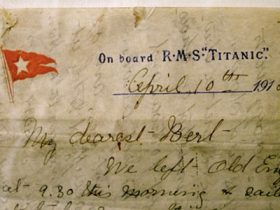 On board R·M·S·"TITANIC."
April 10th 191
My dearest Bert
We left Old En
at 9.30 this morning &